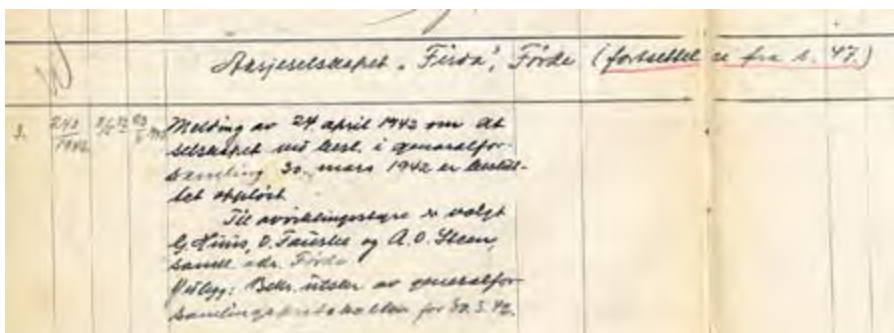 Aksjeselskapet „Firda", Förde (fortsettelse fra s. 47.)
3.
243/1942
Melding av 24. april 1942 om at
selskapet ved besl. i generalfor-
samling 30. mars 1942 er beslut-
tet oppløst.
Til avviklingsstyre er valgt
G. O. og A. O. Steen,
samtl. adr. Förde
Vedlegg: Bekr. utskr. av generalfor-
samlingsprotokollen for 30.3.42.